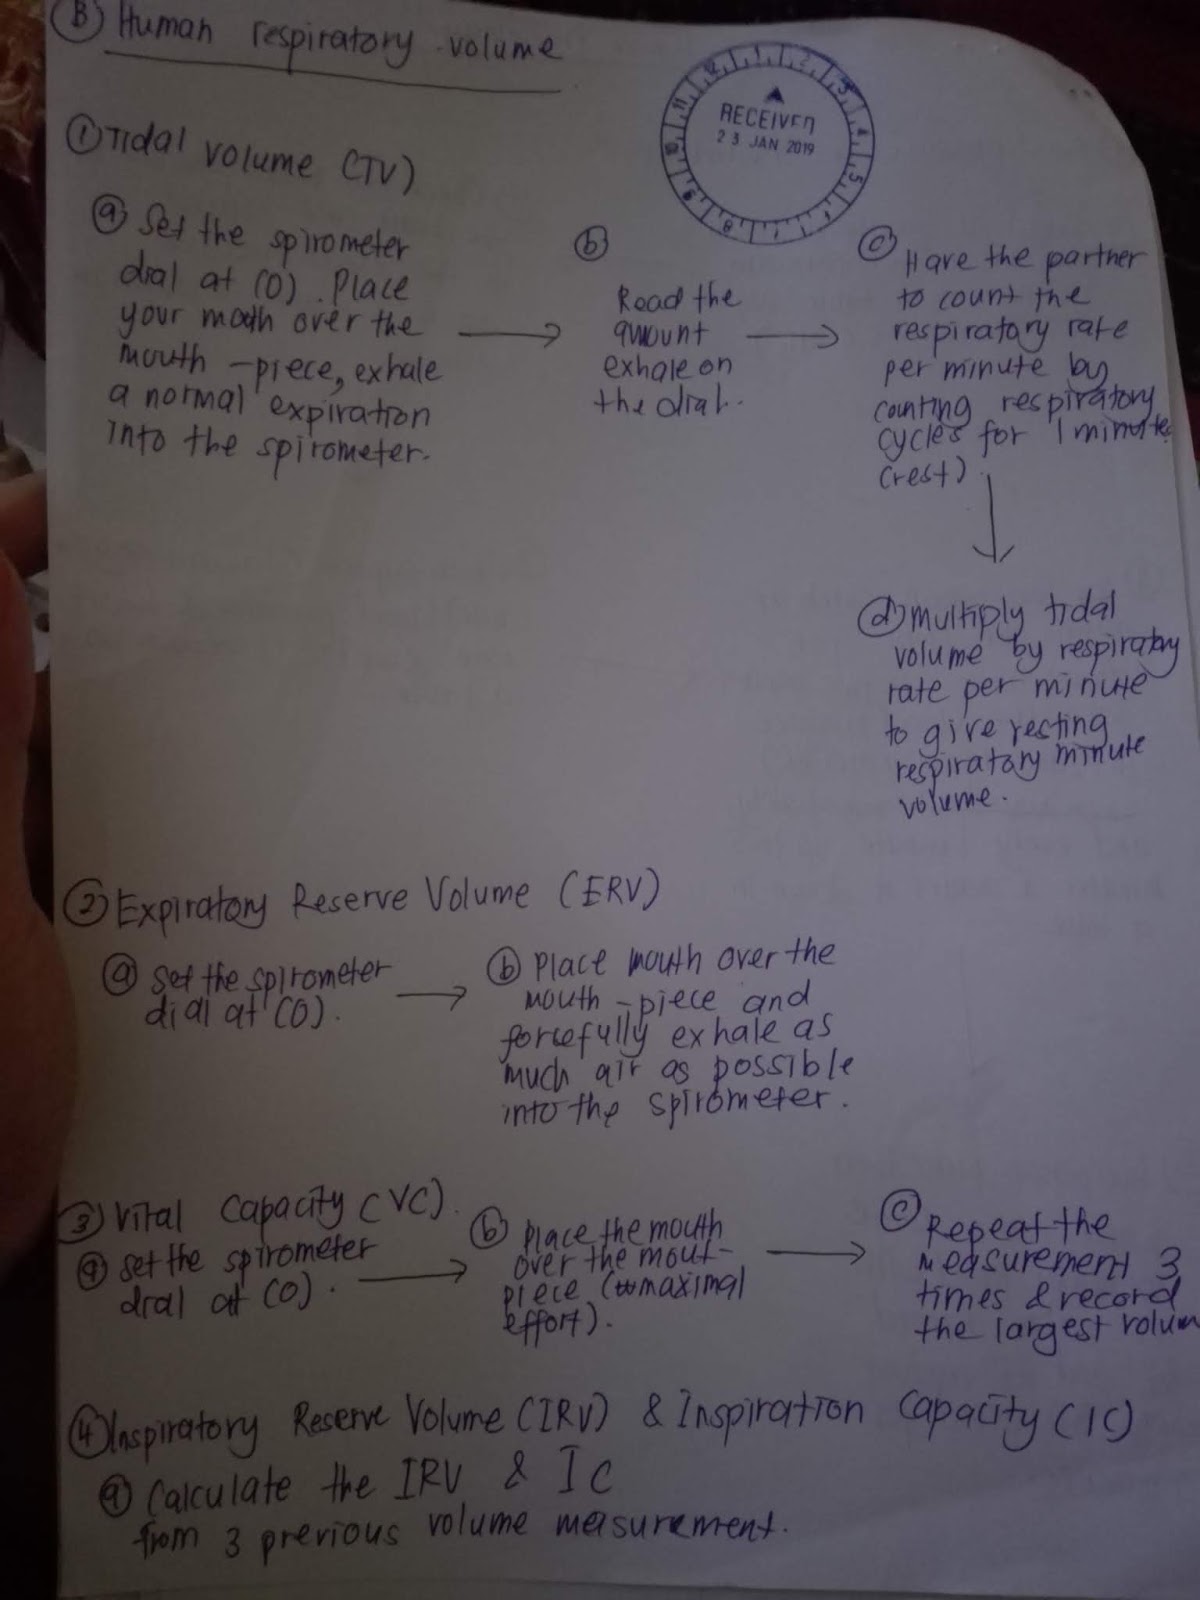 Ⓑ Human respiratory volume
RECEIVED
23 JAN 2019
① Tidal volume (TV)
ⓐ Set the spirometer
dial at (0). Place
your mouth over the
mouth -piece, exhale
a normal expiration
into the spirometer.
ⓑ
Read the
amount
exhale on
the dial.
ⓒ Have the partner
to count the
respiratory rate
per minute by
counting respiratory
cycles for 1 minute
(rest).
ⓓ multiply tidal
volume by respiratory
rate per minute
to give resting
respiratory minute
volume.
② Expiratory Reserve Volume (ERV)
ⓐ Set the spirometer
dial at (0).
ⓑ Place mouth over the
mouth -piece and
forcefully exhale as
much air as possible
into the spirometer.
③ Vital Capacity (VC).
ⓐ Set the spirometer
dial at (0).
ⓑ Place the mouth
over the mout-
piece (maximal
effort).
ⓒ Repeat the
measurement 3
times & record
the largest volum
④ Inspiratory Reserve Volume (IRV) & Inspiration Capacity (IC)
ⓐ Calculate the IRV & IC
from 3 previous volume measurement.